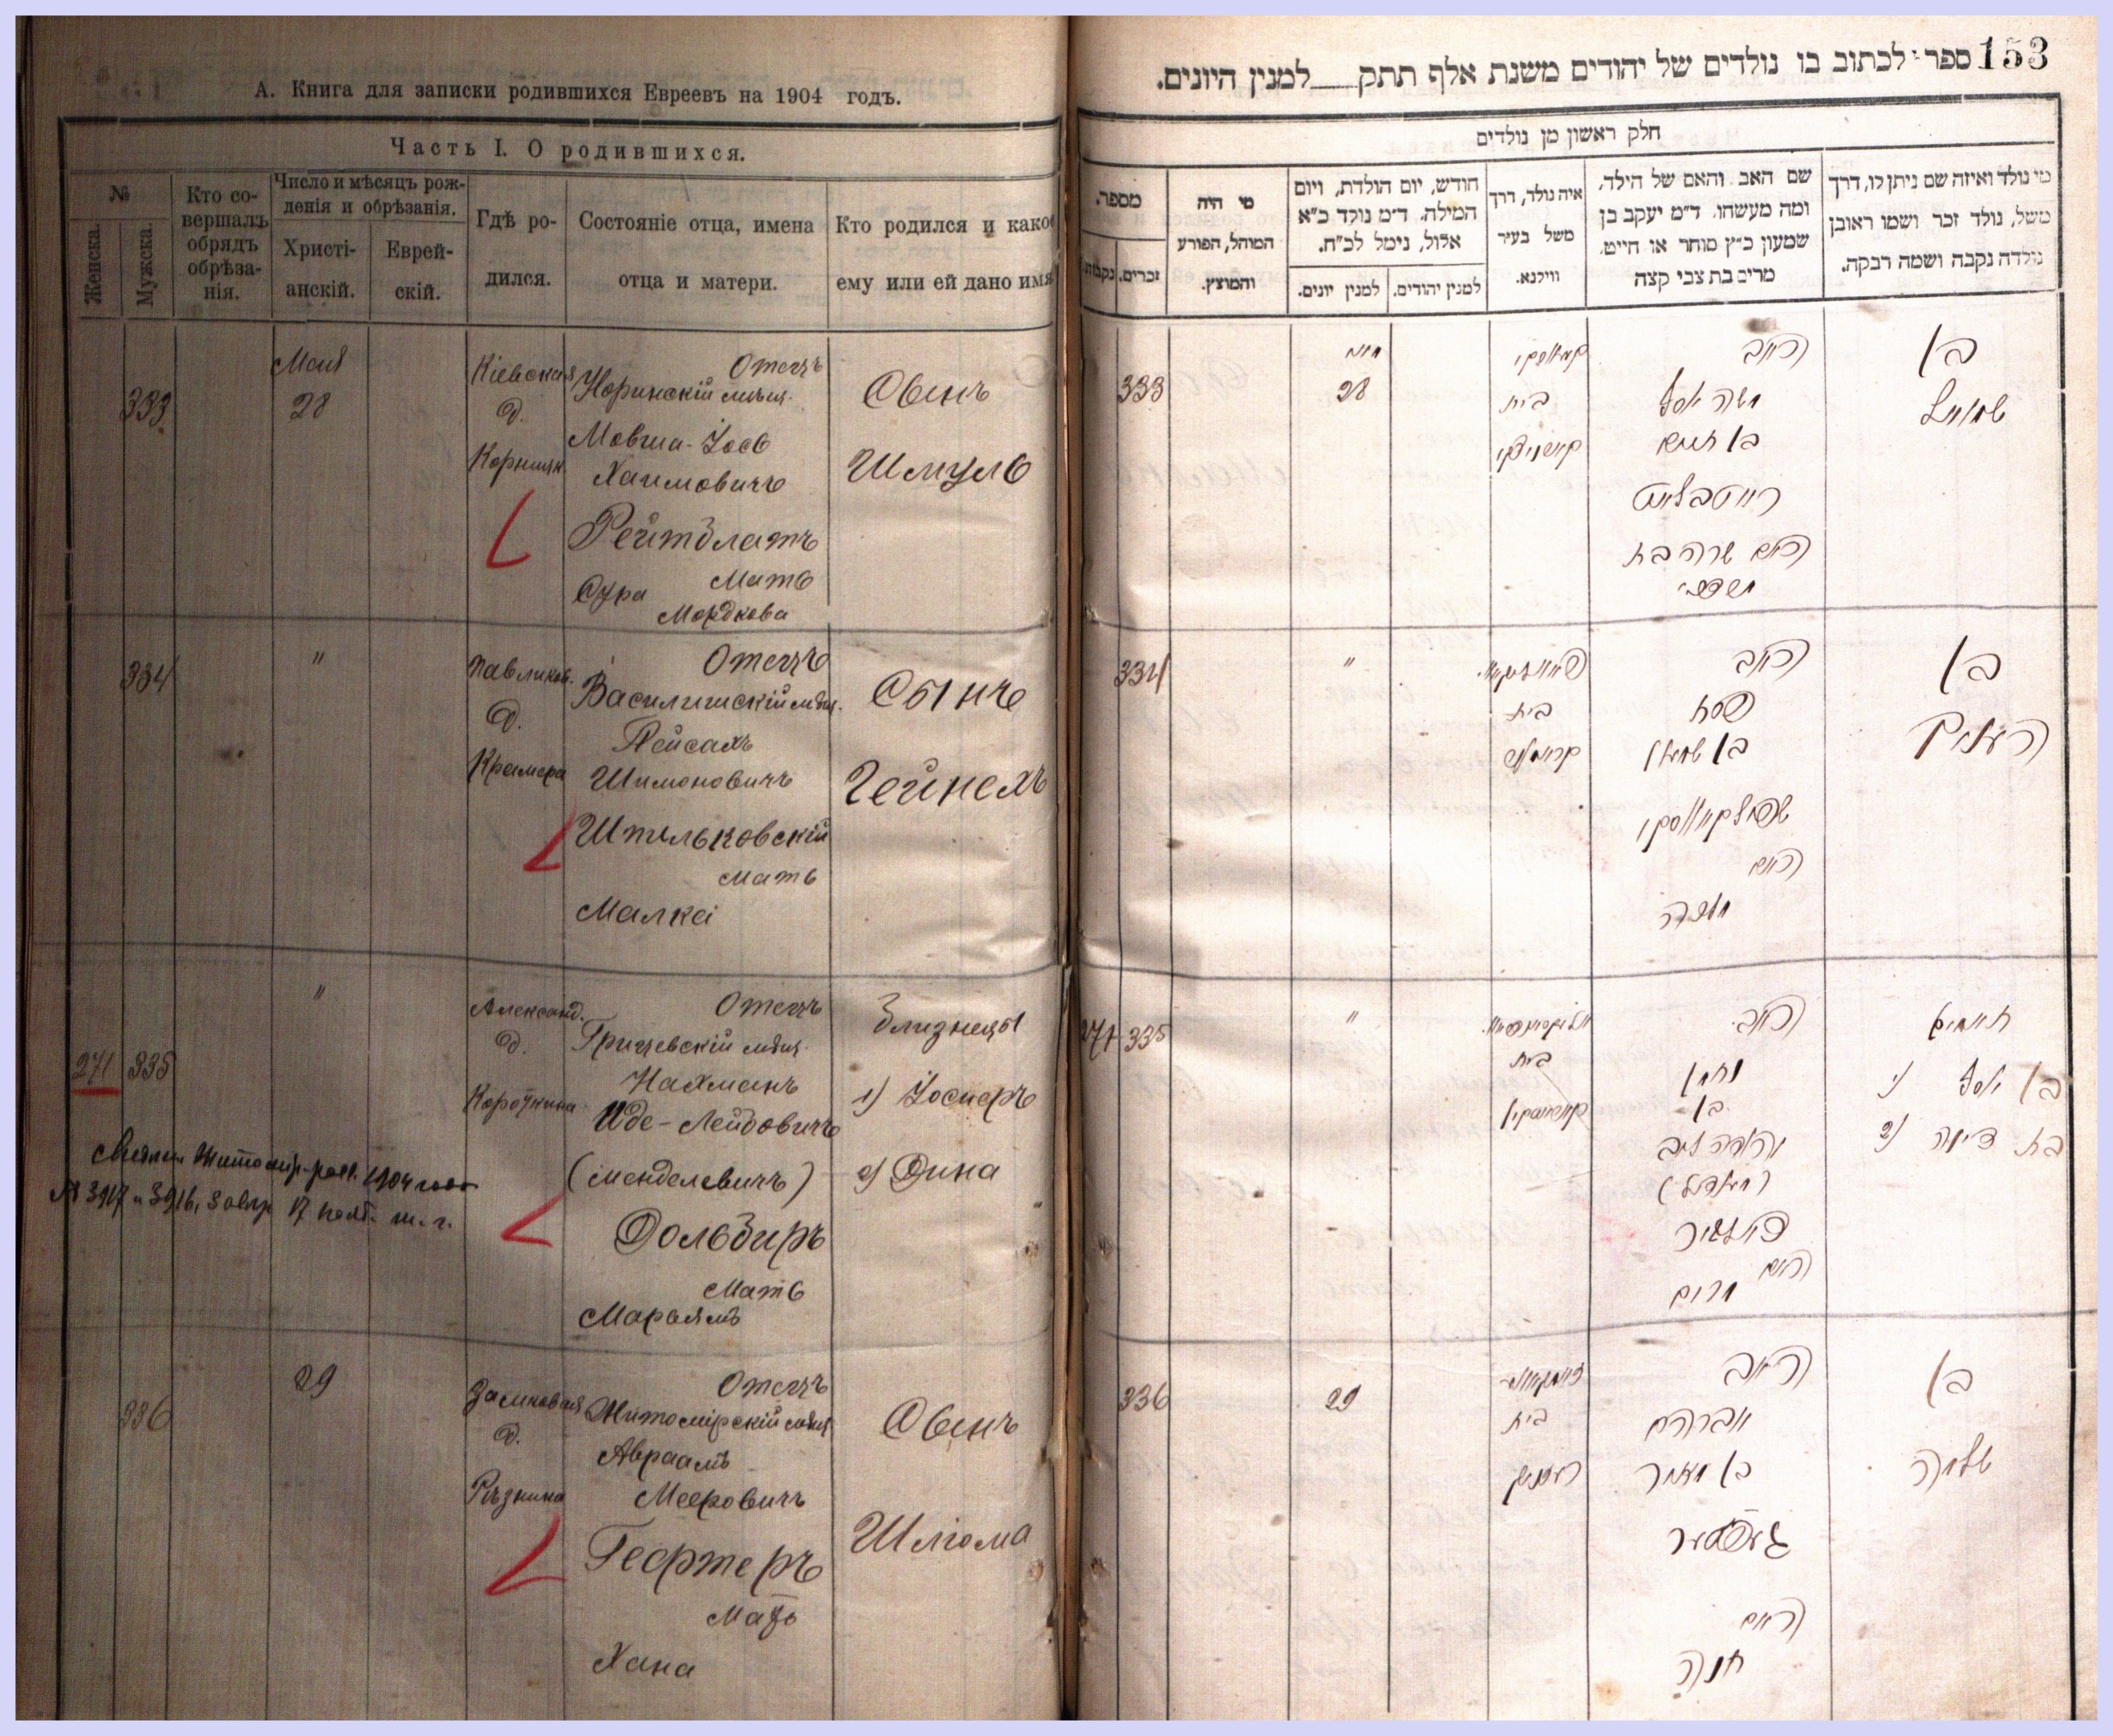 А. Книга для записки родившихся Евреевъ на 1904 годъ.
Часть I. О родившихся.
№
Женска.
Мужска.
Кто со-
вершалъ
обрядъ
обрѣза-
нія.
Число и мѣсяцъ рож-
денія и обрѣзанія.
Христі-
анскій.
Еврей-
скій.
Гдѣ ро-
дился.
Состояніе отца, имена
отца и матери.
Кто родился и какое
ему или ей дано имя
333
Мая
28
Кіевская
д.
Отецъ
Норинскій мѣщ.
Мовша-Іось
Хаимовичъ
Рейтблатъ
Мать
Сура
Мордкова
Сынъ
Шмуль
334
"
Павликов.
д.
Крамера
Отецъ
Василишскій мѣщ.
Пейсахъ
Шимоновичъ
Штильковскій
Мать
Малка
Сынъ
Гейнехъ
271
335
"
Александ.
д.
Отецъ
Грицевскій мѣщ.
Нахманъ
Иде-Лейбовичъ
(Менделевичъ)
Дольбиръ
Мать
Марьямъ
Близнецы
1) Іосифъ
2) Дина
1904
№ 3917 и 3916, 17
336
29
Замковая
д.
Рѣзника
Отецъ
Житомірскій мѣщ
Авраамъ
Мееровичъ
Гефтеръ
Мать
Хана
Сынъ
Шлiома
153
ספר לכתוב בו נולדים של יהודים משנת אלף תתק למנין היונים.
חלק ראשון מן נולדים
מספר.
נקבות.
זכרים.
מי היה
המוהל, הפורע
והמוצץ.
חודש, יום הולדת, ויום
המילה. ד״מ נולד כ״א
אלול, נימל לכ״ח.
למנין יונים.
למנין יהודים.
איה נולד, דרך
משל בעיר
ווילנא.
שם האב והאם של הילד,
ומה מעשהו. ד״מ יעקב בן
שמעון כ״ץ סוחר או חייט.
מרים בת צבי קצה
מי נולד ואיזה שם ניתן לו, דרך
משל, נולד זכר ושמו ראובן
נולדה נקבה ושמה רבקה.
333
מיי
28
בית
האב
משה יוסף
בן חיים
רייטבלאט
האם שרה בת
מרדכי
בן
שמואל
334
"
בית
האב
פסח
בן שמעון
האם
מלכה
בן
העניך
271 335
"
בית
האב
נחמן
בן
יהודה ליב
(מענדיל)
דולביר
האם
מרים
תאומים
1) בן יוסף
2) בת דינה
336
29
בית
האב
אברהם
בן מאיר
געפטער
האם
חנה
בן
שלמה